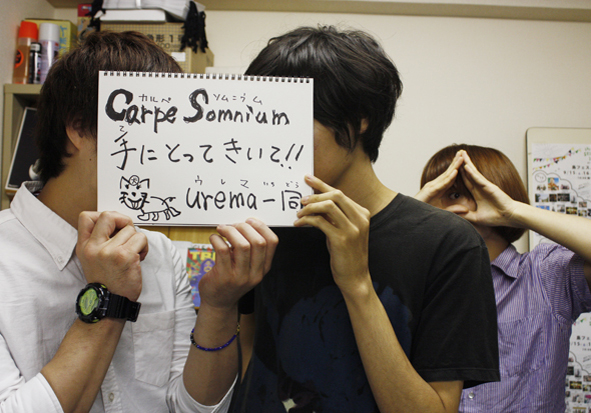 カルペ ソムニウム
Carpe Somnium
て
手にとってきいて!!
ウレマ いちどう
urema一同